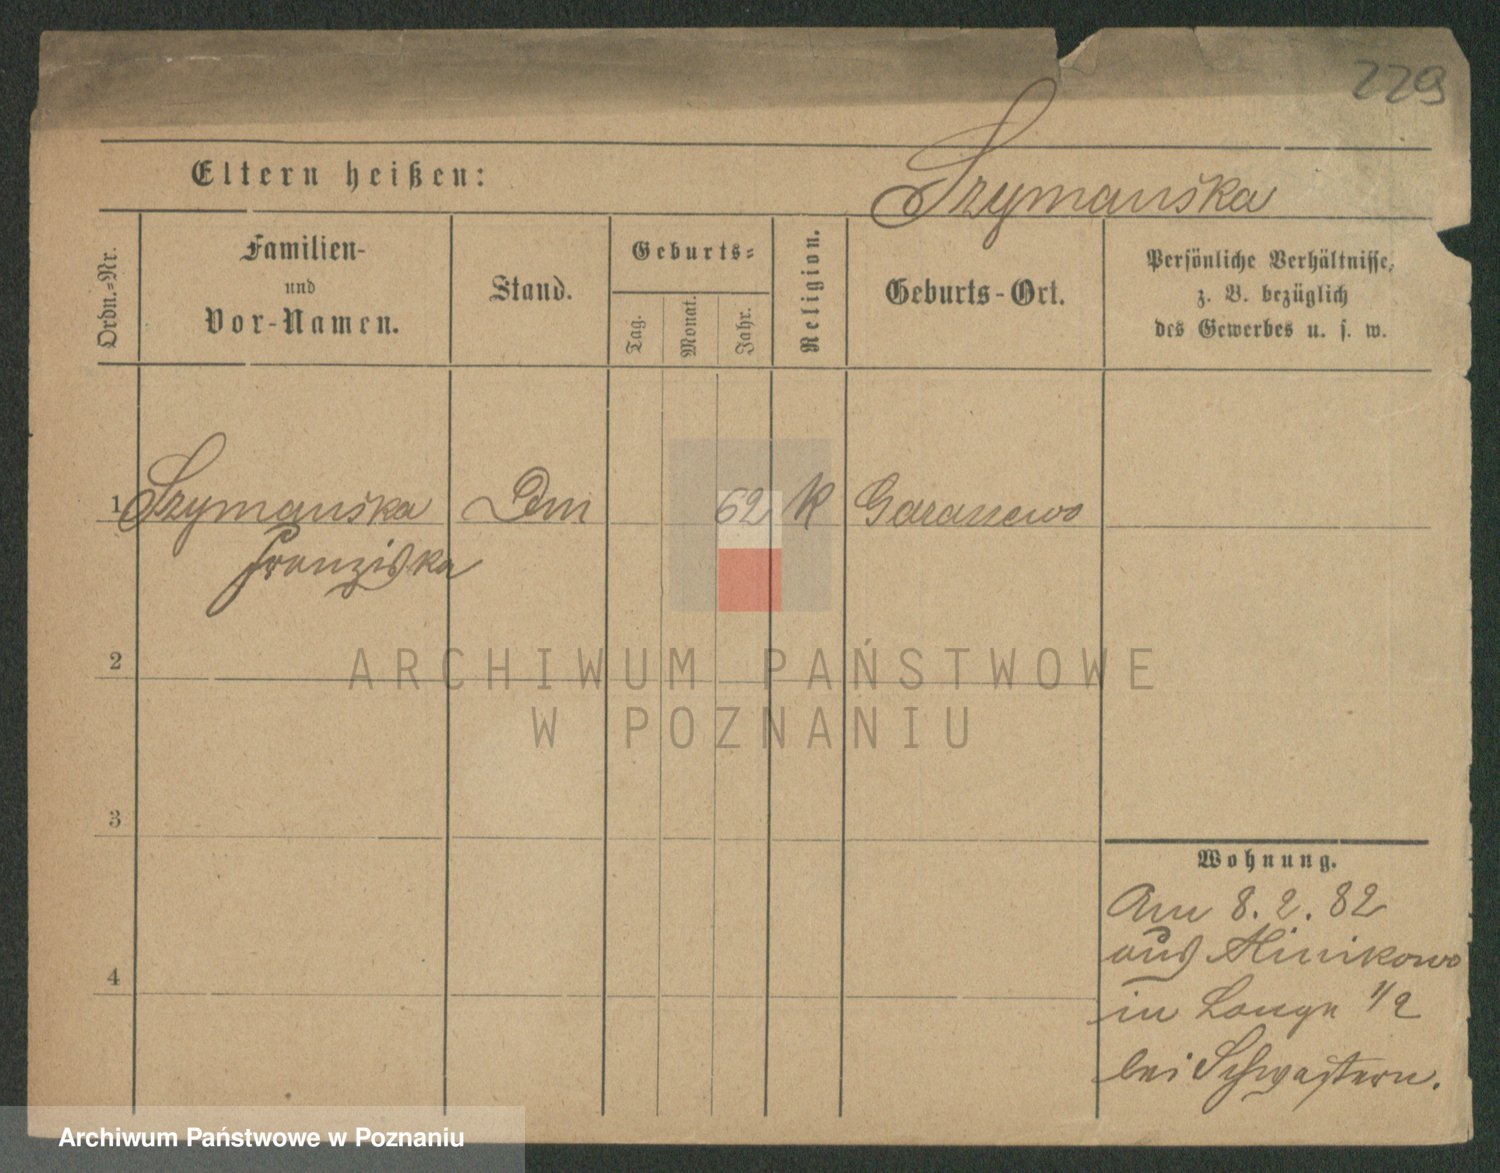 229
Eltern heißen:
Szymańska
Ordn.-Nr.
Familien-
und
Vor-Namen.
Stand.
Geburts-
Tag.
Monat.
Jahr.
Religion.
Geburts-Ort.
Persönliche Verhältnisse,
z. B. bezüglich
des Gewerbes u. s. w.
1 Szymańska 62 K Garaszewo
Franziska
2
ARCHIWUM PAŃSTWOWE
W POZNANIU
3
Wohnung.
Am 8. 2. 82
aus Minikowo
4
in Lange 1/2
bei Schwestern.
Archiwum Państwowe w Poznaniu